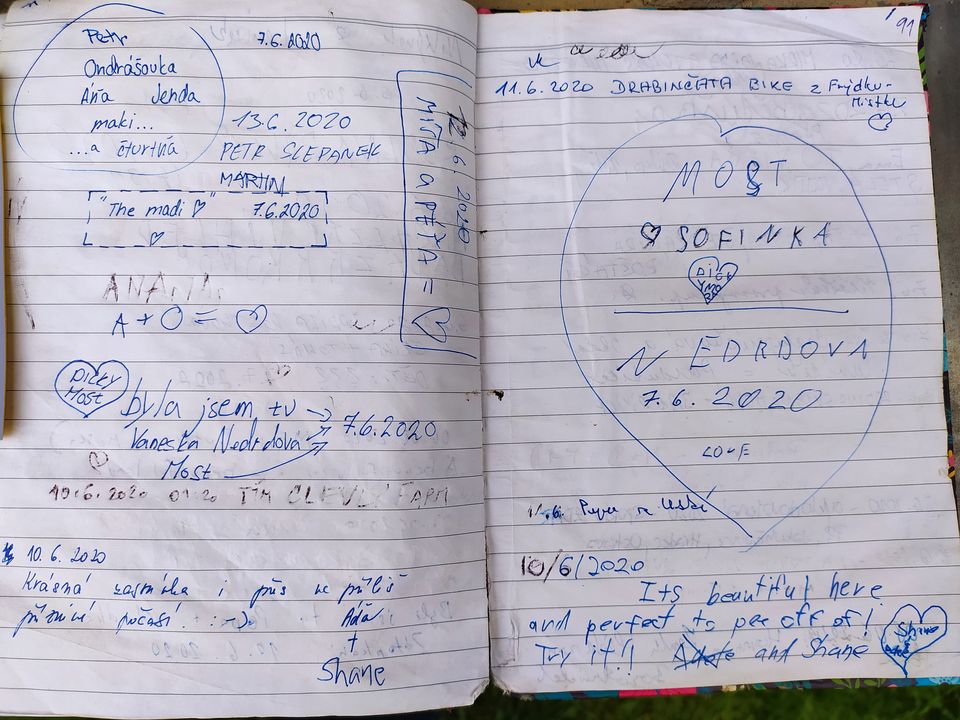 Petr
7.6.2020
Ondrášovka
Áňa Jenda
maki...
...a čtvrtá
13.6.2020
PETR SLEPANEK
MARTIN
"The madi ♡" 7.6.2020
12.6.2020
MIŤA a PÉŤA = ♡
A + O = ♡
DICKY
MOST
byla jsem tu
Vaneska Nedrdová
7.6.2020
Most
10.6.2020 TÝM CLEVLÝ FARM
10.6.2020
Krásná zastávka i přes ne příliš
příznivé počasí! :-).
Áďa
+
Shane
91
11.6.2020 DRABINČATA BIKE z Frýdku-
Místku
MOST
SOFINKA
NEDRDOVA
7.6.2020
LOVE
11.6.
10/6/2020
Its beautiful here
and perfect to pee off of!
Try it!! and Shane
Shane